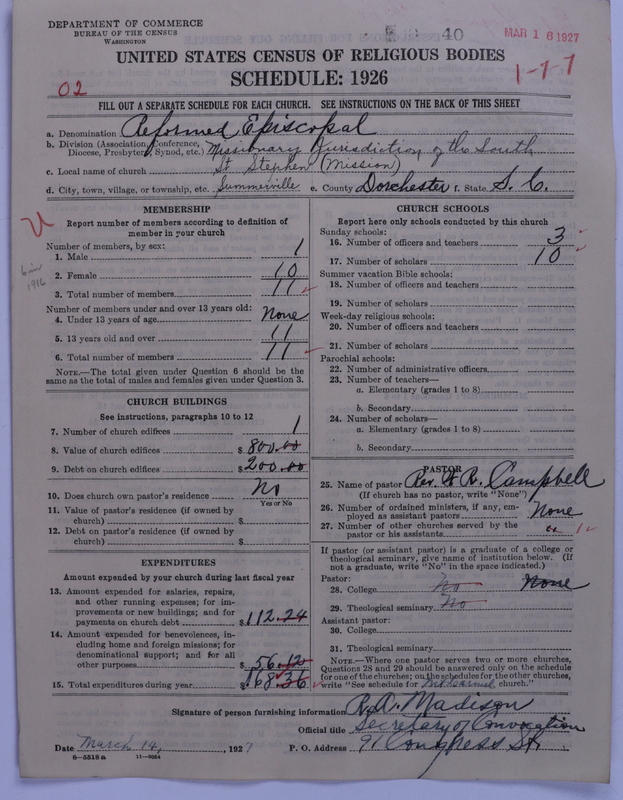 DEPARTMENT OF COMMERCE
BUREAU OF THE CENSUS
WASHINGTON
40
MAR 16 1927
UNITED STATES CENSUS OF RELIGIOUS BODIES
SCHEDULE: 1926
1-7-7
02
FILL OUT A SEPARATE SCHEDULE FOR EACH CHURCH. SEE INSTRUCTIONS ON THE BACK OF THIS SHEET
a. Denomination Reformed Episcopal
b. Division (Association, Conference, Diocese, Presbytery, Synod, etc.) Missionary Jurisdiction of the South
c. Local name of church St Stephen (Mission)
d. City, town, village, or township, etc. Summerville e. County Dorchester f. State S. C.
MEMBERSHIP
Report number of members according to definition of
member in your church
Number of members, by sex:
1. Male 1
2. Female 10
3. Total number of members 11
6 in 1916
Number of members under and over 13 years old:
4. Under 13 years of age None
5. 13 years old and over 11
6. Total number of members 11
NOTE.—The total given under Question 6 should be
same as the total of males and females given under Question 3.
CHURCH BUILDINGS
See instructions, paragraphs 10 to 12
7. Number of church edifices 1
8. Value of church edifices $ 800.00
9. Debt on church edifices $ 200.00
10. Does church own pastor's residence No
Yes or No
11. Value of pastor's residence (if owned by
church) $
12. Debt on pastor's residence (if owned by
church) $
EXPENDITURES
Amount expended by your church during last fiscal year
13. Amount expended for salaries, repairs,
and other running expenses; for im-
provements or new buildings; and for
payments on church debt $ 112.24
14. Amount expended for benevolences, in-
cluding home and foreign missions; for
denominational support; and for all
other purposes 56.12
15. Total expenditures during year $ 168.36
CHURCH SCHOOLS
Report here only schools conducted by this church
Sunday schools:
16. Number of officers and teachers 3
17. Number of scholars 10
Summer vacation Bible schools:
18. Number of officers and teachers
19. Number of scholars
Week-day religious schools:
20. Number of officers and teachers
21. Number of scholars
Parochial schools:
22. Number of administrative officers
23. Number of teachers—
a. Elementary (grades 1 to 8)
b. Secondary
24. Number of scholars—
a. Elementary (grades 1 to 8)
b. Secondary
PASTOR
25. Name of pastor Rev. Campbell
(If church has no pastor, write "None")
26. Number of ordained ministers, if any, em-
ployed as assistant pastors None
27. Number of other churches served by the
pastor or his assistants 1
If pastor (or assistant pastor) is a graduate of a college or
theological seminary, give name of institution below. (If
not a graduate, write "No" in the space indicated.)
Pastor:
28. College No None
29. Theological seminary No
Assistant pastor:
30. College
31. Theological seminary
NOTE.—Where one pastor serves two or more churches,
Questions 28 and 29 should be answered only on the schedule
for one of the churches; on the schedules for the other churches,
write "See schedule for church."
Signature of person furnishing information Madison
Official title Secretary of Convocation
Date March 14, 1927 P. O. Address 91 Congress St.
8-5518a 11-9084